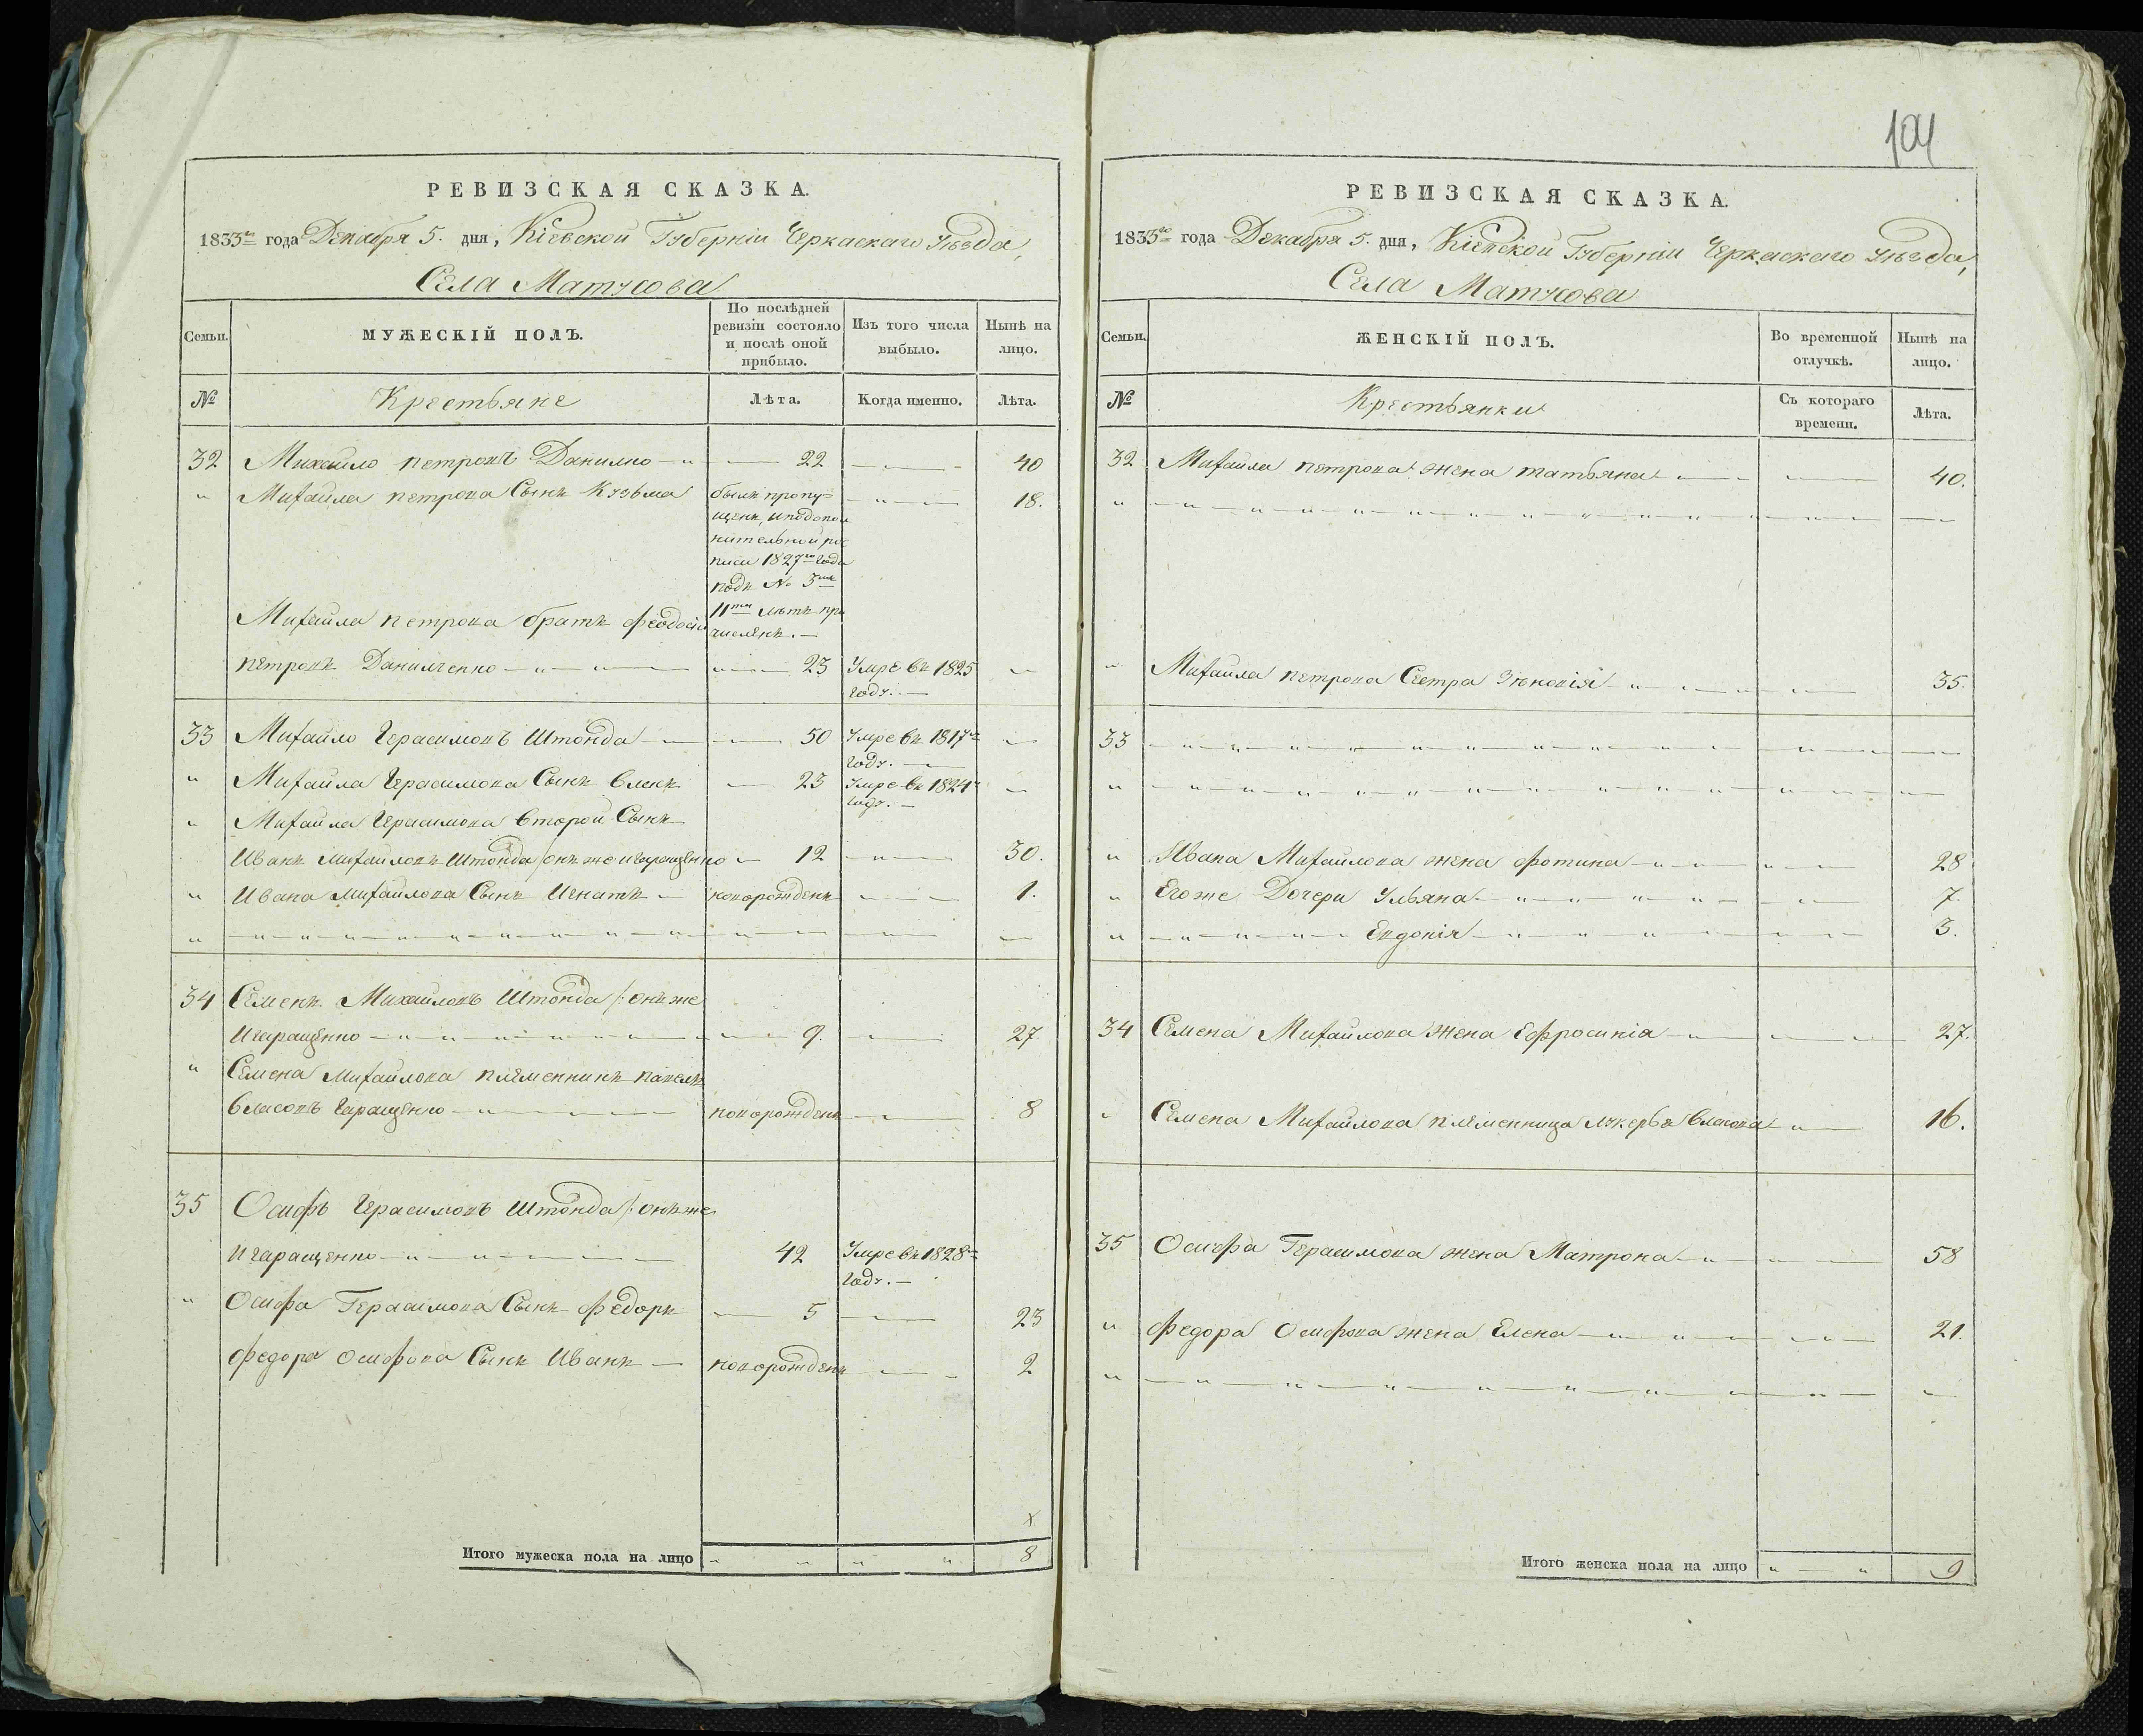 РЕВИЗСКАЯ СКАЗКА.
1835го года Декабря 5. дня, Кіевской Губерніи Черкаскаго уѣзда,
Села Матусова
Семьи.
МУЖЕСКІЙ ПОЛЪ.
По послѣдней ревизіи состояло и послѣ оной прибыло.
Изъ того числа выбыло.
Нынѣ на лицо.
№
Крестьяне
Лѣта.
Когда именно.
Лѣта.
32 Михайло петровъ Данилко — 22 — 40
" Михайла петрова Сынъ Кузьма
былъ пропу-
— " — 18.
щенъ, иподопол
нительной рос
писи 1827го года
подъ № 3мъ
11ти лѣтъ при
Михайла петрова братъ феодосій
численъ. —
петровъ Данилченко — " — 23 Умре въ 1825 —
году. —
33 Михайло Герасимовъ Штонда — 50 Умре въ 1817м —
году. —
" Михайла Герасимова Сынъ власъ — 23 Умре въ 1824м —
году. —
" Михайла Герасимова второй Сынъ
Иванъ Михайловъ Штонда /онъ же игаращенко — 12 — " — 30.
" Ивана михайлова Сынъ Игнатъ — новорожденъ — 1.
" — " — " — " —
34 Семенъ Михайловъ Штонда /: онъ же
игаращенко — " — 9. — 27
" Семена михайлова племенникъ павелъ
власовъ гаращенко — " — новорожденъ — 8
35 Осифъ Герасимовъ Штонда /: онъ же
игаращенко — " — 42 Умре въ 1828м
году. —
" Осифа Герасимова Сынъ федоръ — 5 — 23
федора осифова Сынъ Иванъ — новорожденъ — 2
х
Итого мужеска пола на лицо " " " " 8
104
РЕВИЗСКАЯ СКАЗКА.
1835го года Декабря 5. дня, Кіевской Губерніи Черкаскаго уѣзда,
Села Матусова
Семьи.
ЖЕНСКІЙ ПОЛЪ.
Во временной отлучкѣ.
Нынѣ на лицо.
№
Крестьянки
Съ котораго времени.
Лѣта.
32 Михайла петрова жена татьяна — 40.
" — " — " — " —
" Михайла петрова Сестра Зѣновія — " — 35.
33 — " — " — " —
" — " — " — " —
" Ивана Михайлова жена фотина — " — 28
" Егоже Дочери Ульяна — " — 7.
" — " — Евдокія — " — 3.
34 Семена Михайлова жена Ефросинія — " — 27.
" Семена Михайлова племенница лукерья власова — " — 16.
35 Осифа Герасимова жена Матрона — " — 58
" федора Осифова жена Елена — " — 21.
" — " — " — " —
Итого женска пола на лицо " — " 9